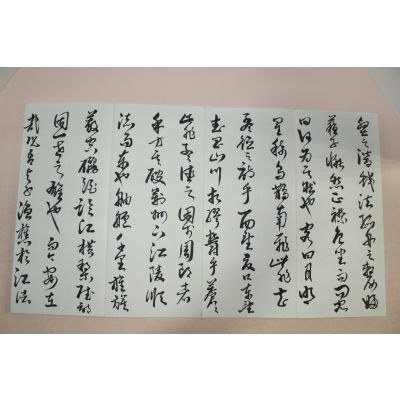 壑之潛蛟泣孤舟之嫠婦
蘇子愀然正襟危坐而問客
曰何為其然也客曰月明
星稀烏鵲南飛此非曹
孟德之詩乎西望夏口東望
武昌山川相繆鬱乎蒼蒼
此非孟德之困於周郎者
乎方其破荊州下江陵順
流而東也舳艫千里旌旗
蔽空釃酒臨江橫槊賦詩
固一世之雄也而今安在
哉況吾與子漁樵於江渚